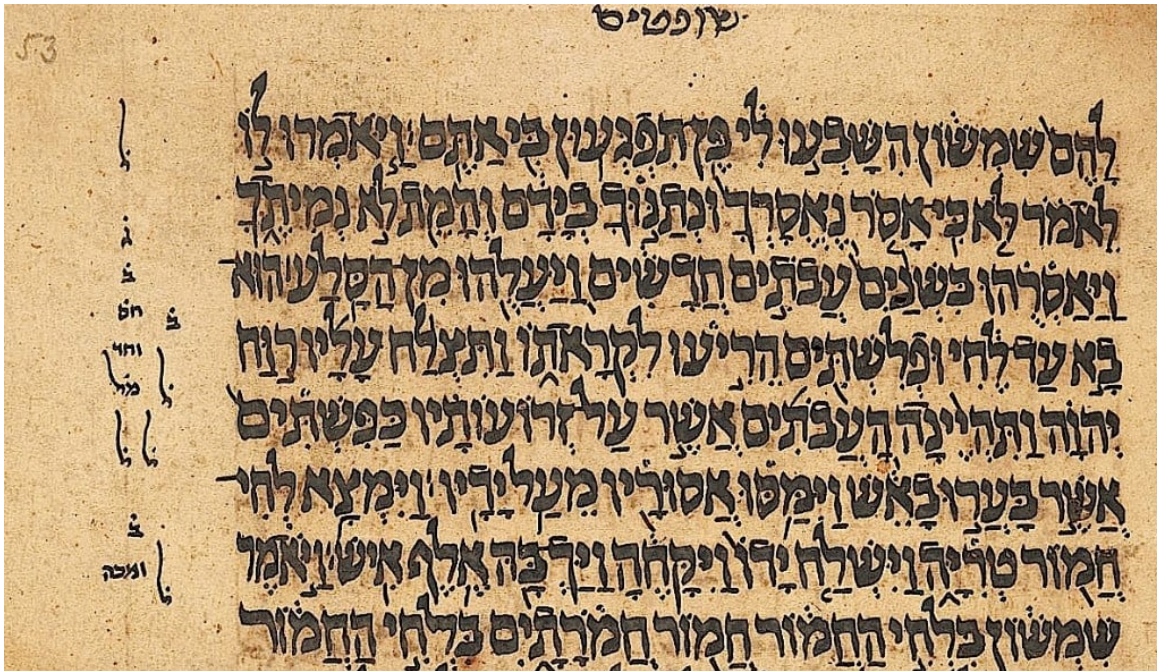 53
שופטים
לָהֶם שִׁמְשׁוֹן הִשָּׁבְעוּ לִי פֶּן תִּפְגְּעוּן בִּי אַתֶּם׃ וַיֹּאמְרוּ לוֹ
ל
לֵאמֹר לֹא כִּי אָסֹר נֶאֱסָרְךָ וּנְתַנּוּךָ בְיָדָם וְהָמֵת לֹא נְמִיתֶךָ
ג
וַיַּאַסְרֻהוּ בִּשְׁנַיִם עֲבֹתִים חֲדָשִׁים וַיַּעֲלֻהוּ מִן הַסָּלַע׃ הוּא
ב
חס ב
בָא עַד לֶחִי וּפְלִשְׁתִּים הֵרִיעוּ לִקְרָאתוֹ וַתִּצְלַח עָלָיו רוּחַ
ל וחד מל
יְהוָה וַתִּהְיֶינָה הָעֲבֹתִים אֲשֶׁר עַל זְרוֹעוֹתָיו כַּפִּשְׁתִּים
ל ל
אֲשֶׁר בָּעֲרוּ בָאֵשׁ וַיִּמַּסּוּ אֱסוּרָיו מֵעַל יָדָיו׃ וַיִּמְצָא לְחִי
ב
חֲמוֹר טְרִיָּה וַיִּשְׁלַח יָדוֹ וַיִּקָּחֶהָ וַיַּךְ בָּהּ אֶלֶף אִישׁ׃ וַיֹּאמֶר
ל ומכה
שִׁמְשׁוֹן בִּלְחִי הַחֲמוֹר חֲמוֹר חֲמֹרָתָיִם בִּלְחִי הַחֲמוֹר